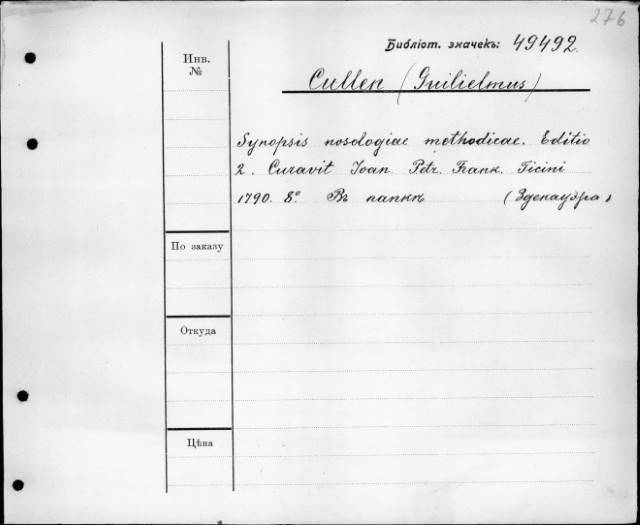 276
Библіот. значекъ: 49492.
Инв.
№
Cullen (Guilielmus)
Synopsis nosologiae methodicae. Editio
2. Curavit Joan. Petr. Frank. Ticini
1790. 8º. Въ папкѣ (Здекауэра)
По заказу
Откуда
Цѣна